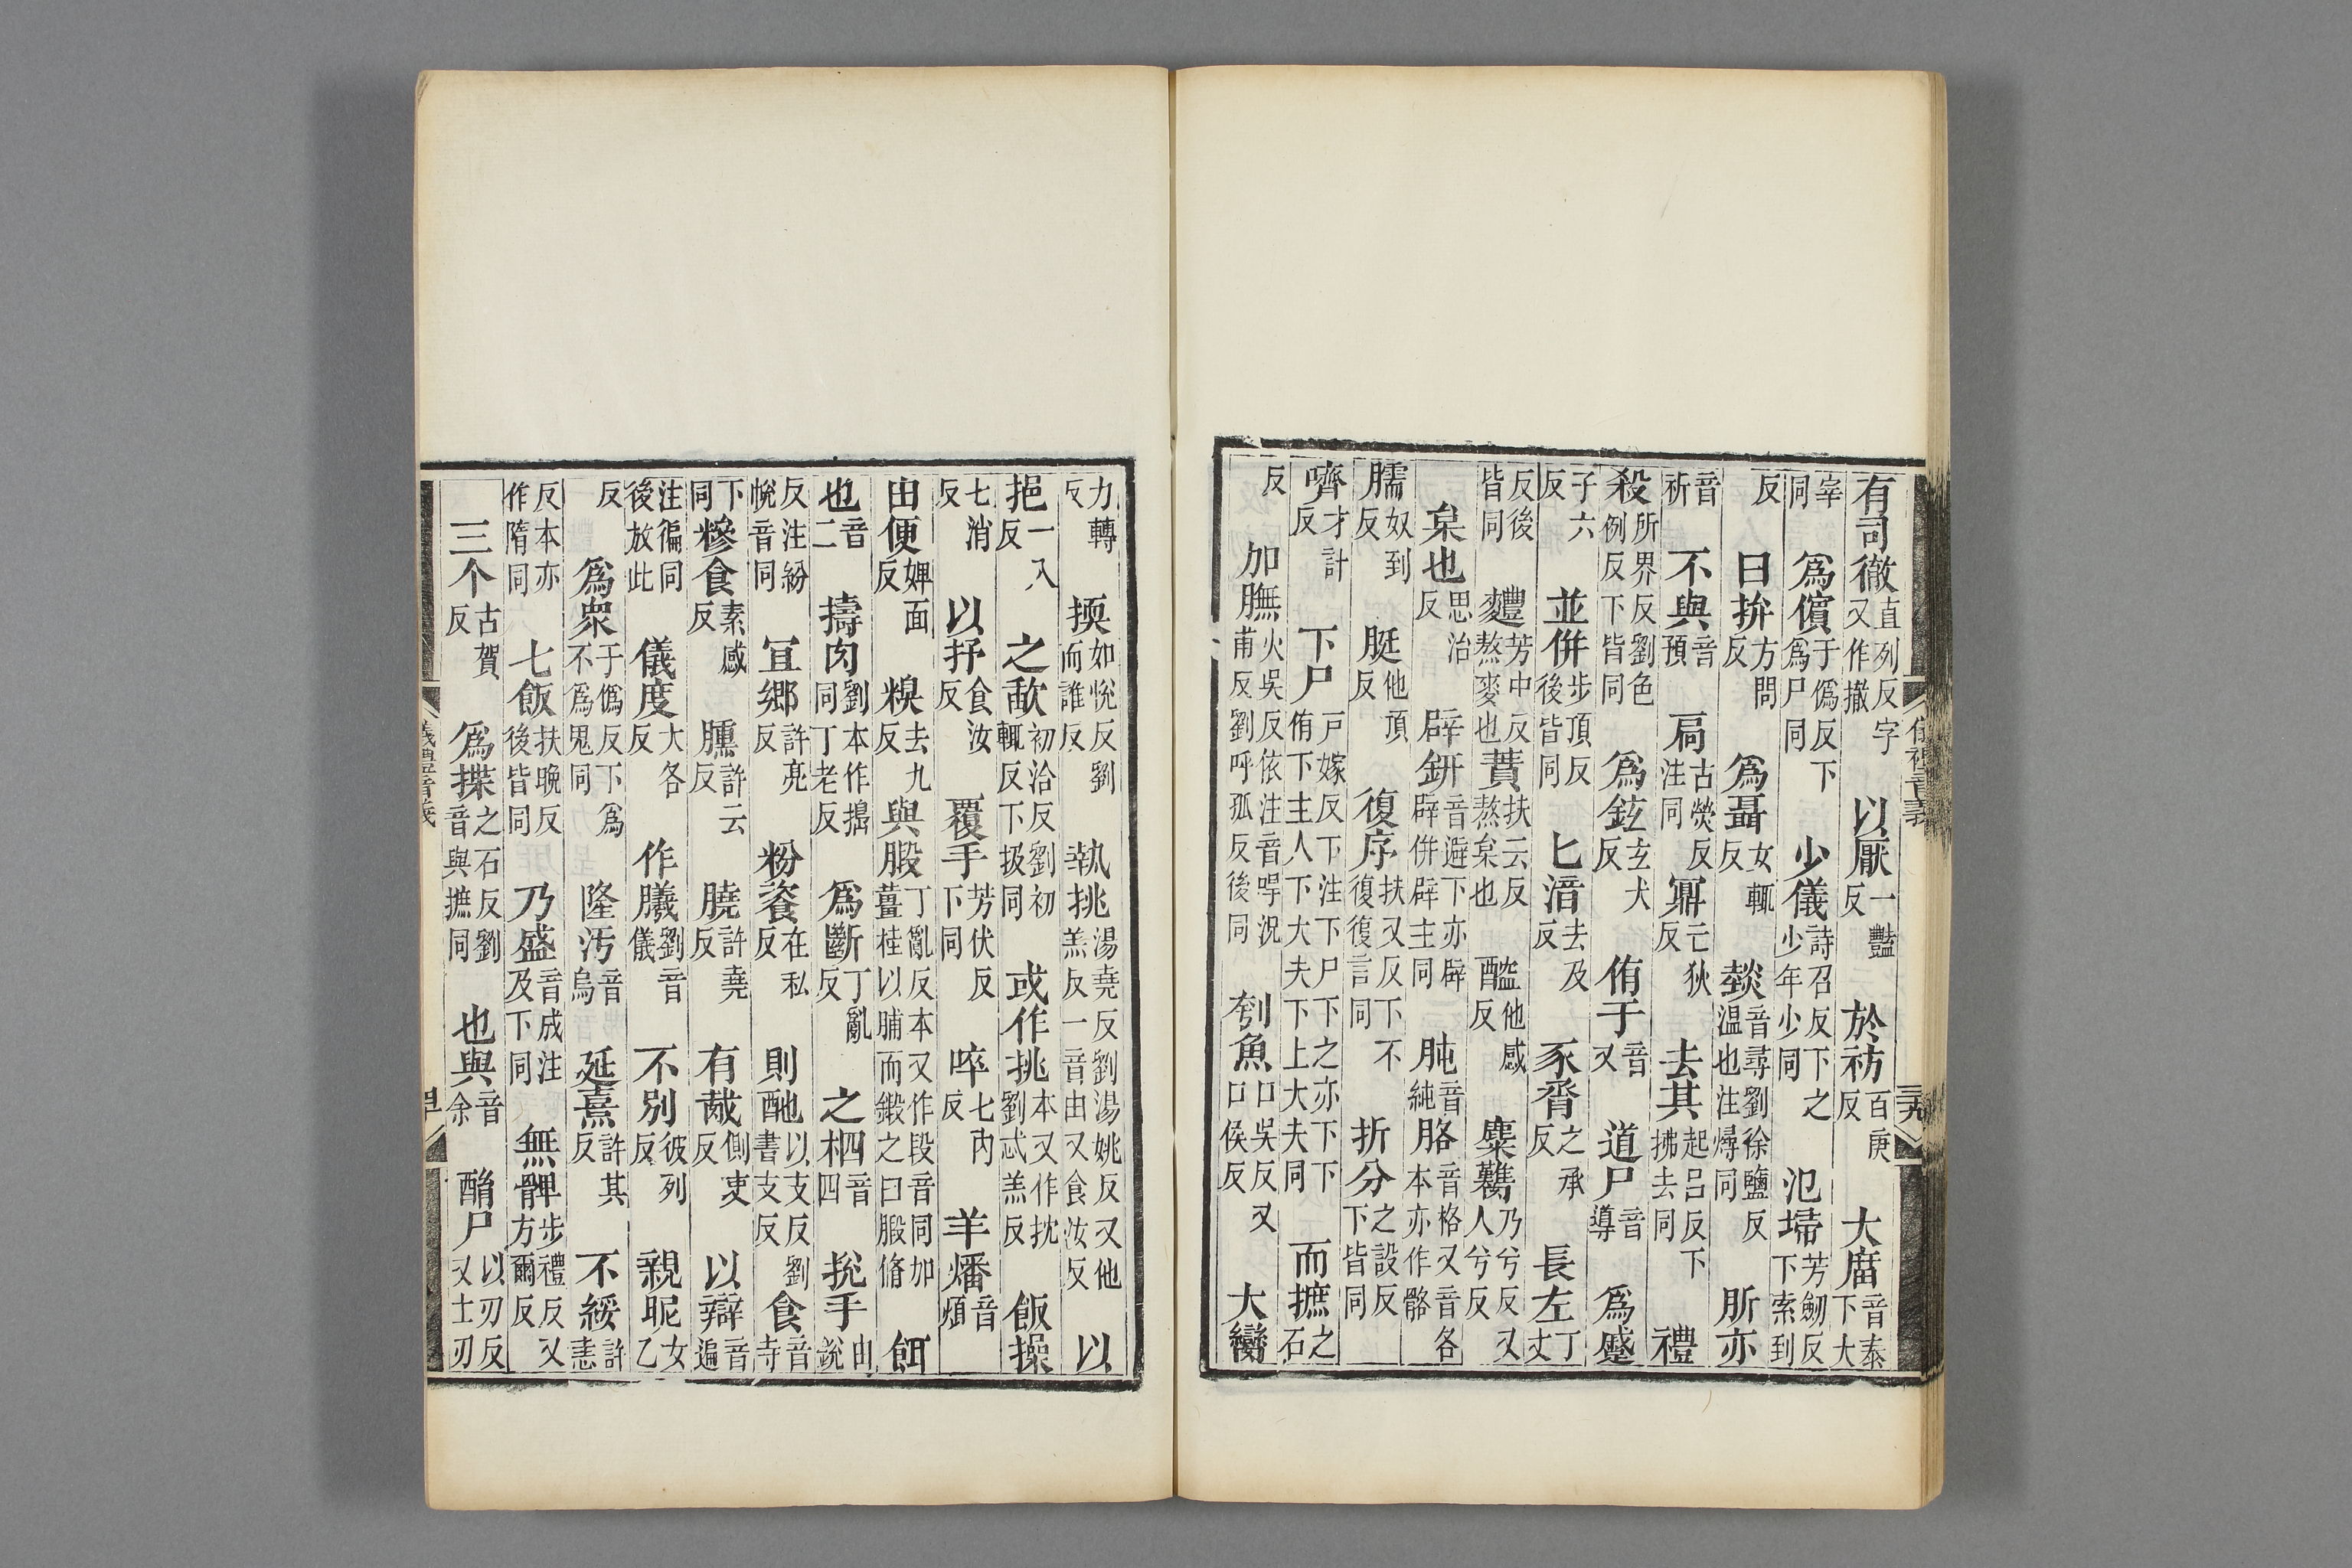 有司徹直列反字又作撤以厭一豔反於祊百庚反大庿音泰下大
宰同爲儐于僞反下爲尸同少儀詩召反下之少年少同氾埽芳劒反下索到
反曰拚方問反爲聶女輒反燅音尋劉徐鹽反溫也注燖同所亦
音祈不與音預扃古熒反注同鼏亡狄反去其起呂反下拂去同禮
殺所界反劉色例反下皆同爲鉉玄犬反侑于音又道尸音導爲蹙
子六反並併步頂反後皆同匕湆去及反豕脀之承反長左丁丈
反後皆同麷芳中反熬麥也蕡扶云反熬枲也醓他感反麋臡乃兮反又人兮反
枲也思治反辟鉶音避下亦辟辟併辟主同肫音純胳音格又音各本亦作骼
臑奴到反脡他頂反復序扶又反下不復復言同折分之設反下皆同
嚌才計反下尸戶嫁反下注下尸下之亦下下侑下主人下大夫下上大夫同而摭之石
反加膴火吳反依注音哻況甫反劉呼孤反後同刳魚口吳反又口侯反大臠
力轉反擩如悅反劉而誰反執挑湯堯反劉湯姚反又他羔反一音由又食汝反以
挹一入反之㪚初洽反劉初輒反下扱同或作挑本又作抌劉忒羔反飯操
七消反以抒食汝反覆手芳伏反下同啐七內反羊燔音煩
由便婢面反糗去九反與腶丁亂反本又作段音同加薑桂以脯而鍛之曰腶脩餌
也音二擣肉劉本作搗同丁老反爲斷丁亂反之柶音四挩手由銳
反注紛帨音同冝鄉許亮反粉餈在私反則酏以支反劉書支反食音寺
下同糝食素感反臐許云反膮許堯反有胾側吏反以辯音遍
注徧同後放此儀度大各反作膱劉音儀不別彼列反親昵女乙
反爲衆于僞反下爲不爲鬼同隆汚音烏延熹許其反不綏許恚
反本亦作隋同七飯扶晚反後皆同乃盛音成注及下同無髀步禮反又方爾反
三个古賀反爲揲之石反劉音與摭同也與音余酳尸以刃反又士刃
儀禮音義
三九
儀禮音義